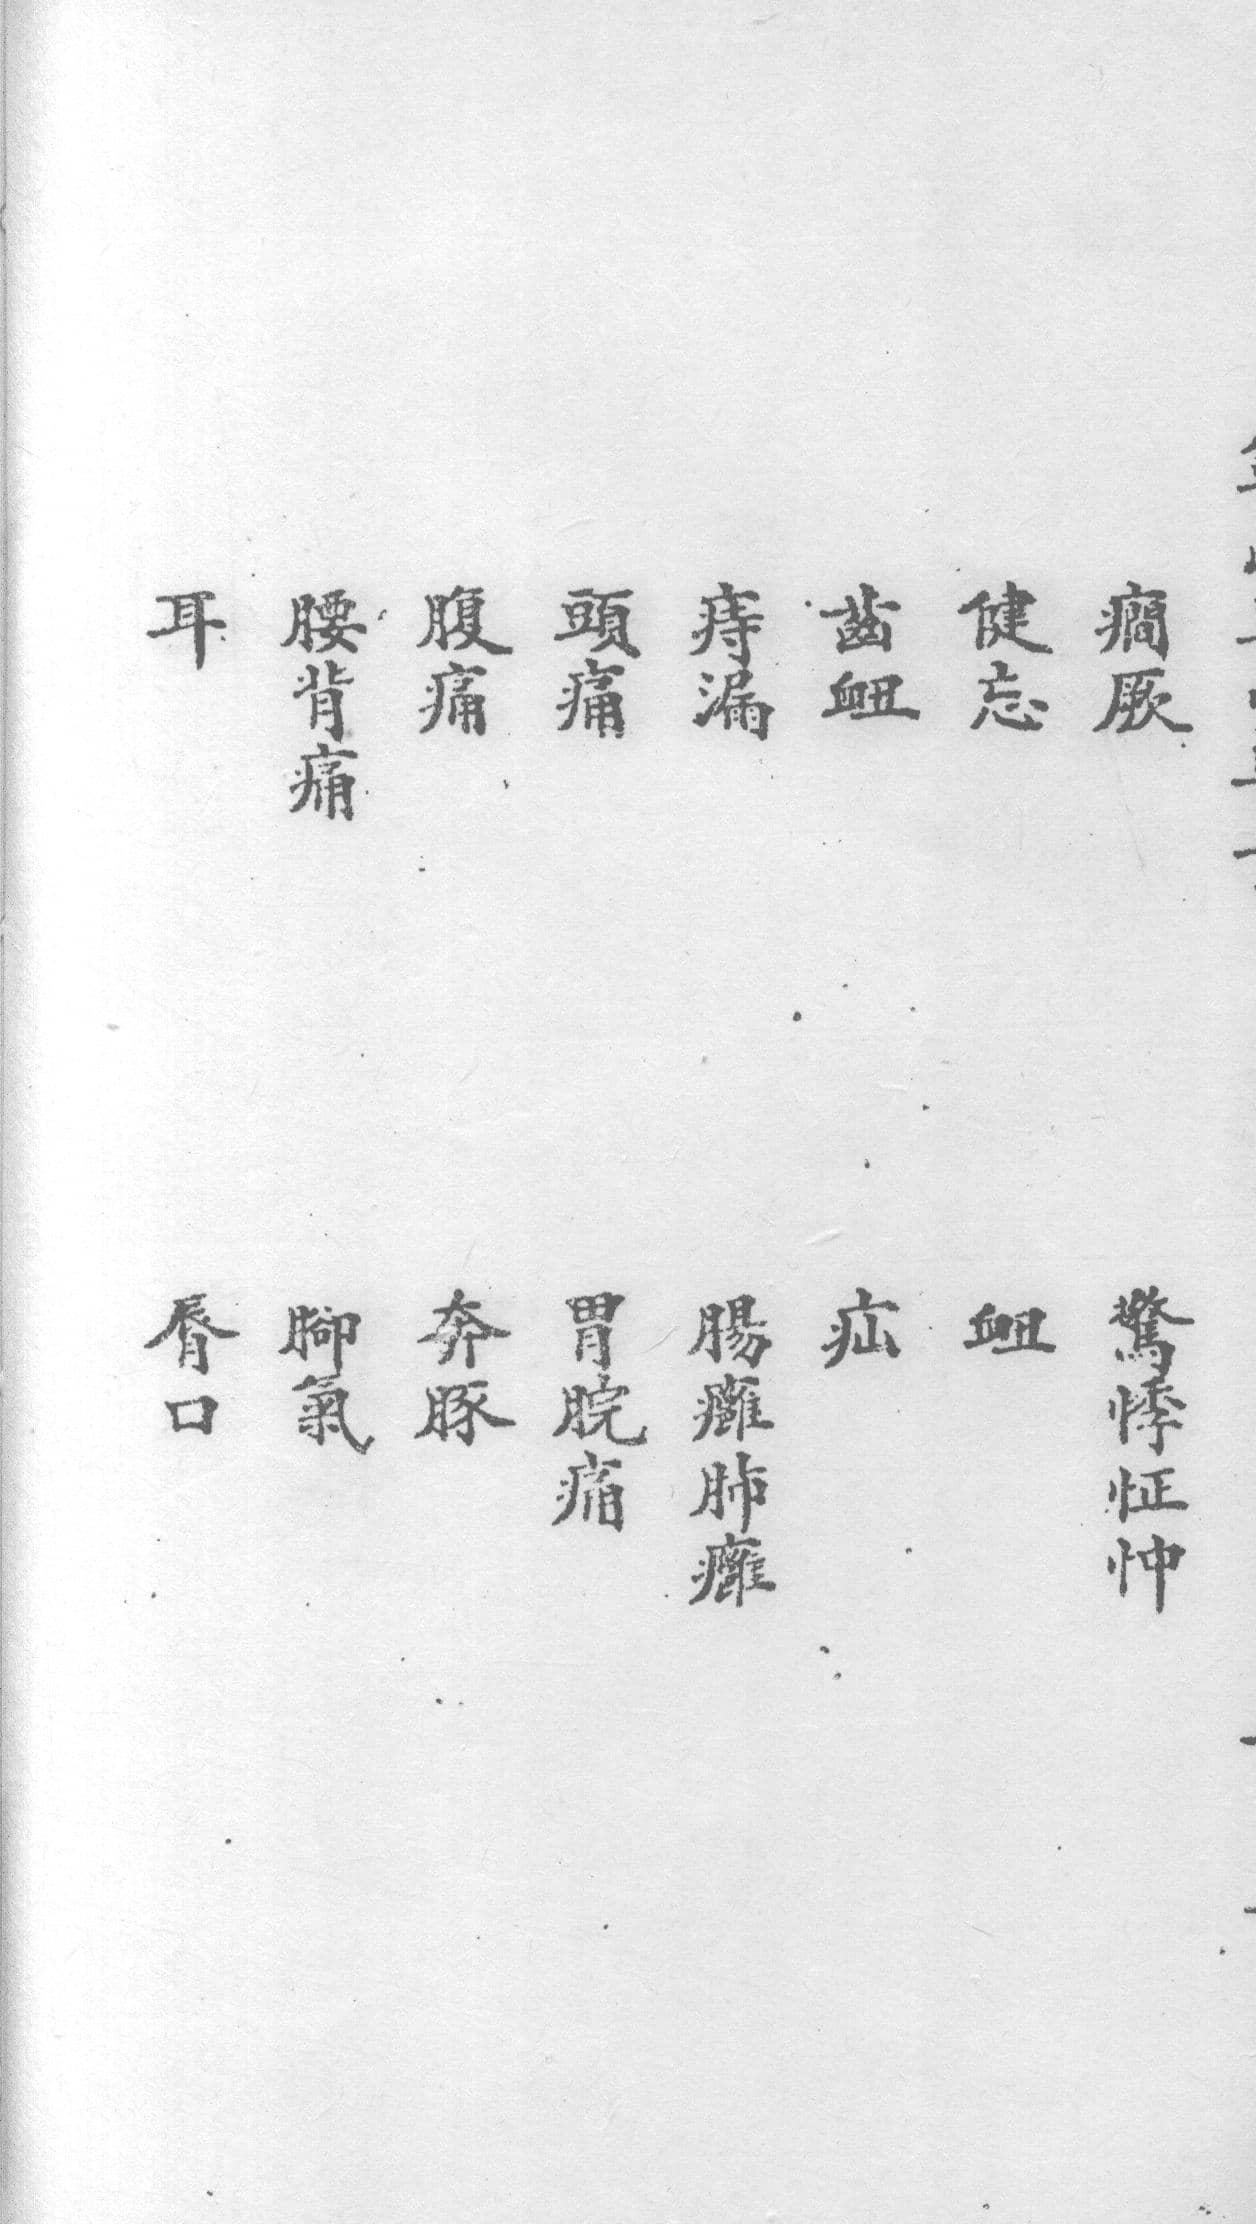 癇厥 驚悸怔忡
健忘 衂
齒衂 疝
痔漏 腸癰肺癰
頭痛 胃脘痛
腹痛 奔豚
腰背痛 腳氣
耳 脣口